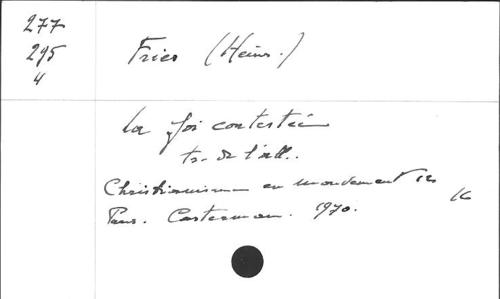 277
295
4
Fries (Heinr.)
La foi contestée
tr. de l'all..
Christianisme en mouvement 12
Paris. Casterman. 1970. 16